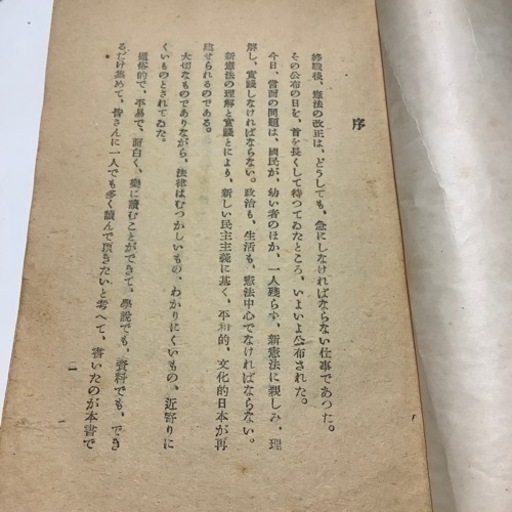 序
終戰後、憲法の改正は、どうしても、急にしなければならない仕事であつた。
その公布の日を、首を長くして待つてゐたところ、いよいよ公布された。
今日、當面の問題は、國民が、幼い者のほか、一人殘らず、新憲法に親しみ、理
解し、實踐しなければならない。政治も、生活も、憲法中心でなければならない。
新憲法の理解と實踐とにより、新しい民主主義に基く、平和的、文化的日本が再
建せられるのである。
大切なものでありながら、法律はむつかしいもの、わかりにくいもの、近寄りに
くいものとされてゐた。
通俗的で、平易で、面白く、樂に讀むことができて、學說でも、資料でも、でき
るだけ集めて、皆さんに一人でも多く讀んで頂きたいと考へて、書いたのが本書で
一